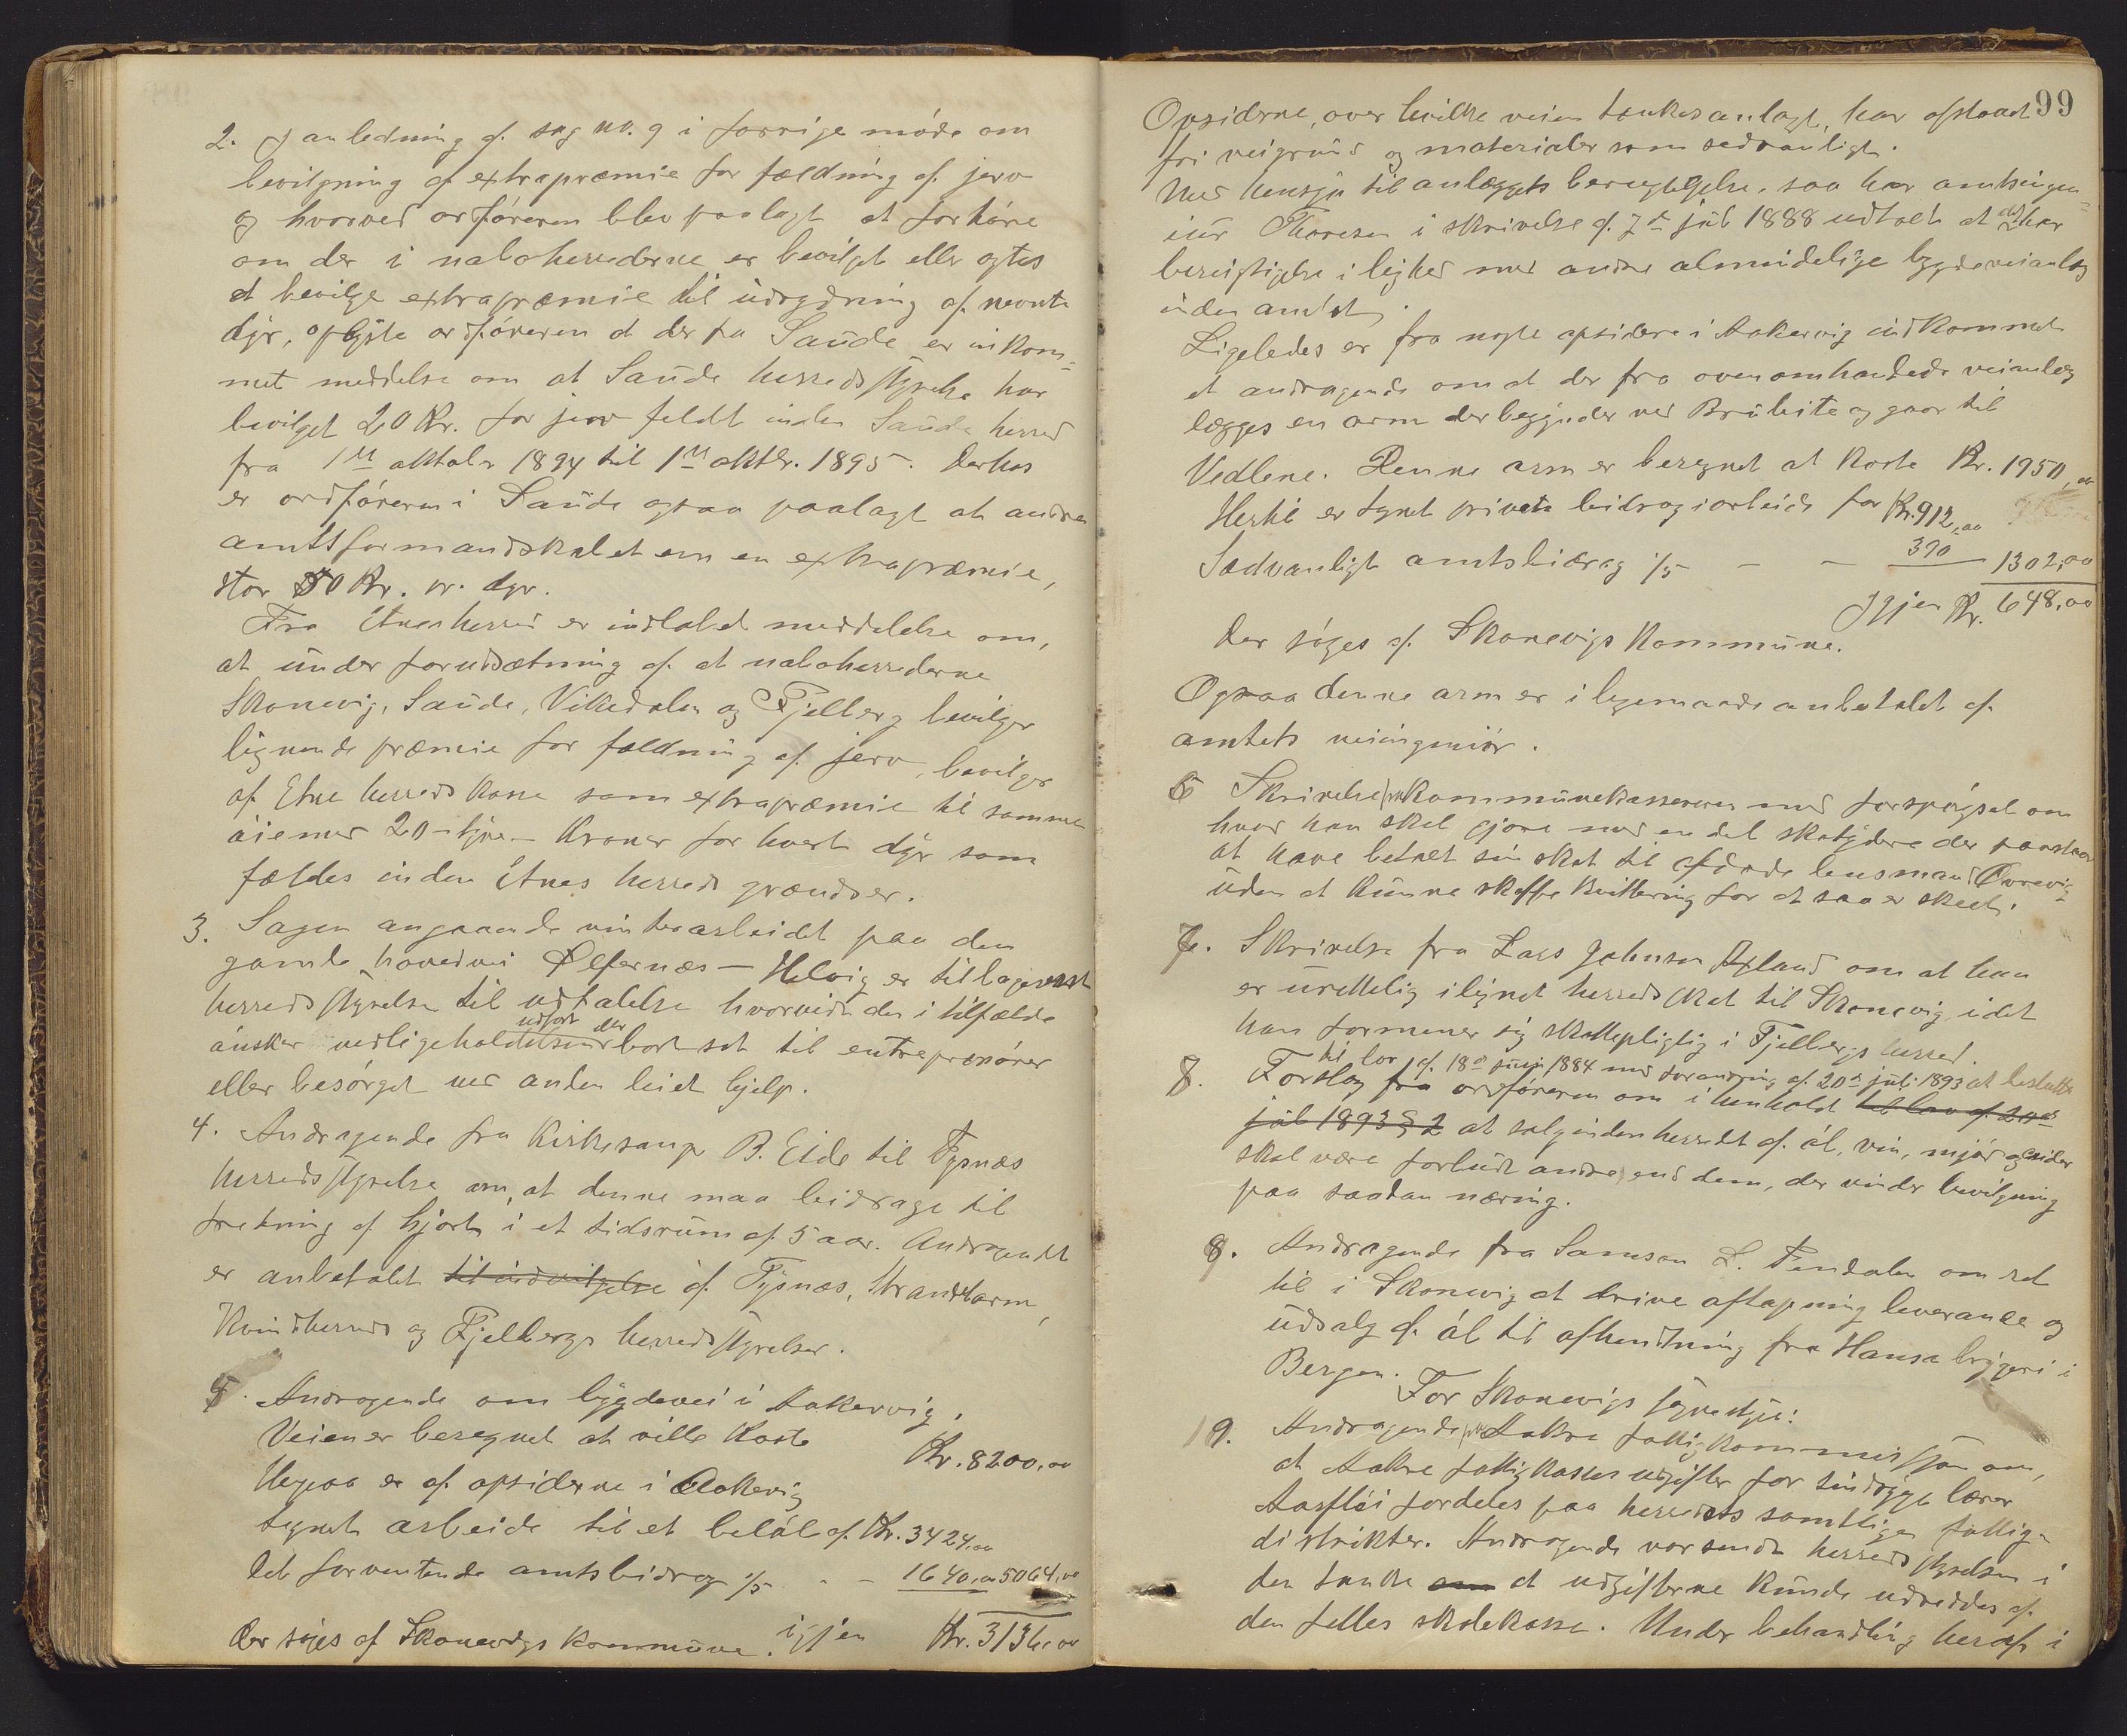 2. I anledning af sag no. 9 i forrige møde om
bevilgning af extrapræmie for fældning af jerv
og hvorved ordføreren blev paalagt at forhøre
om der i naboherrederne er bevilget eller agtes
at bevilge extrapræmie til udrydning af nevnte
dyr, oplyste ordføreren at der fra Saude er inkom-
met meddelse om at Saude herredsstyrelse har
bevilget 20 Kr. for jerv feldt inden Saude herred
fra 1st oktober 1894 til 1st oktbr. 1895. Derhos
er ordføreren i Saude ogsaa paalagt at andra
amtsformandskabet om en extrapræmie,
stor 50 Kr. pr. dyr.
Fra Etneherred er indløbet meddelelse om,
at under forudsætning af at naboherrederne
Skonevig, Saude, Vikedalen og Fjelberg bevilger
lignende præmie for fældning af jerv, bevilges
af Etne herredskasse som extrapræmie til samme
øiemed 20 - tyve - Kroner for hvert dyr som
fældes inden Etnes herreds grændser.
3. Sagen angaaende vinterarbeidet paa den
gamle hovedvei Ølfernæs - Helvig er tilbagesendt
herredsstyrelsen til udtalelse hvorvidt den i tilfælde
udført eller
ønsker vedligeholdelsen bortsat til entreprenører
eller besørget ved anden leiet hjelp.
4. Andragende fra Kirkesanger B. Eide til Tysnæs
herredsstyrelse om, at denne maa beidrage til
fredning af hjort i et tidsrum af 5 aar. Andragendet
er anbefalet til indvilgelse af Tysnæs, Strandebarm,
Kvindherreds og Fjelbergs herredsstyrelser.
5. Andragende om bygdevei i Aakervig.
Veien er beregnet at ville koste Kr. 8200,00
Herpaa er af opsiderne i Aakervig
tegnet arbeide til et beløb af Kr. 3424,00
Det forventende amtsbidrag 1/5 - - 1640,00 5064,00
Der søges af Skonevigs kommune. igjen Kr. 3136,00
99
Opsiderne, over hvilke veien tænkes anlagt, har afstaaet
fri veigrund og materialer som sedvanligt.
Med hensyn til anlæggets berettigelse, saa har amtsingen-
iør Thoresen i skrivelse af 7de juli 1888 udtalt at det har
berettigelse i lighed med andre almindelige bygdeveianlæg
inden amtet.
Ligeledes er fra nogle opsidere i Aakervig indkommet
et andragende om at der fra ovenomhandlede veianlæg
lægges en arm der begynder ved Brubite og gaar til
Vedlene. Denne arm er beregnet at koste Kr. 1950,00
Hertil er tegnet privat bidrag i arbeide for Kr. 912,00
Sædvanligt amtsbidrag 1/5 - - 390 1302,00
Igjen Kr. 648,00
der søges af Skonevigs Kommune.
Ogsaa denne arm er i ligemaade anbefalet af
amtets veiingeniør.
6 Skrivelse fra Kommunekassereren med forspørgsel om
hvad han skal gjøre med en del skatydere der paastaar
at have betalt sin skat til afdøde lensmand Øvrevig
uden at kunne skaffe kvittering for at saa er skeet.
7. Skrivelse fra Lars Johnsen om at han
er urettelig ilignet herredsskat til Skonevig, idet
han formener sig skattepligtig i Fjelbergs herred.
til lov af 18de juni 1884 med forandring af 20de juli 1893 at beslutte
8. Forslag fra ordføreren om i henhold til lov af 20de
juli 1893 § 2 at salg inden herredet af øl, vin, mjød og cider
skal være forbudt andre, end dem, der vinder bevilgning
paa saadan næring.
9. Andragende fra Samson L. Tindalen om ret
til i Skonevig at drive aftapning leverance og
udsalg af øl til afhendtning fra Hansa bryggeri i
Bergen.
For Skonevigs sognestyre:
19. Andragende fra Aakre fattigkommission om,
at Aakre fattigkasses udgifter for sindssyge lærer
Aarfløi fordeles paa herredets samtlige fattig-
distrikter. Andragende var sendt herredsstyrelsen i
den tanke om at udgifterne kunde udreddes af
den felles skolekasse. Under behandling heraf i